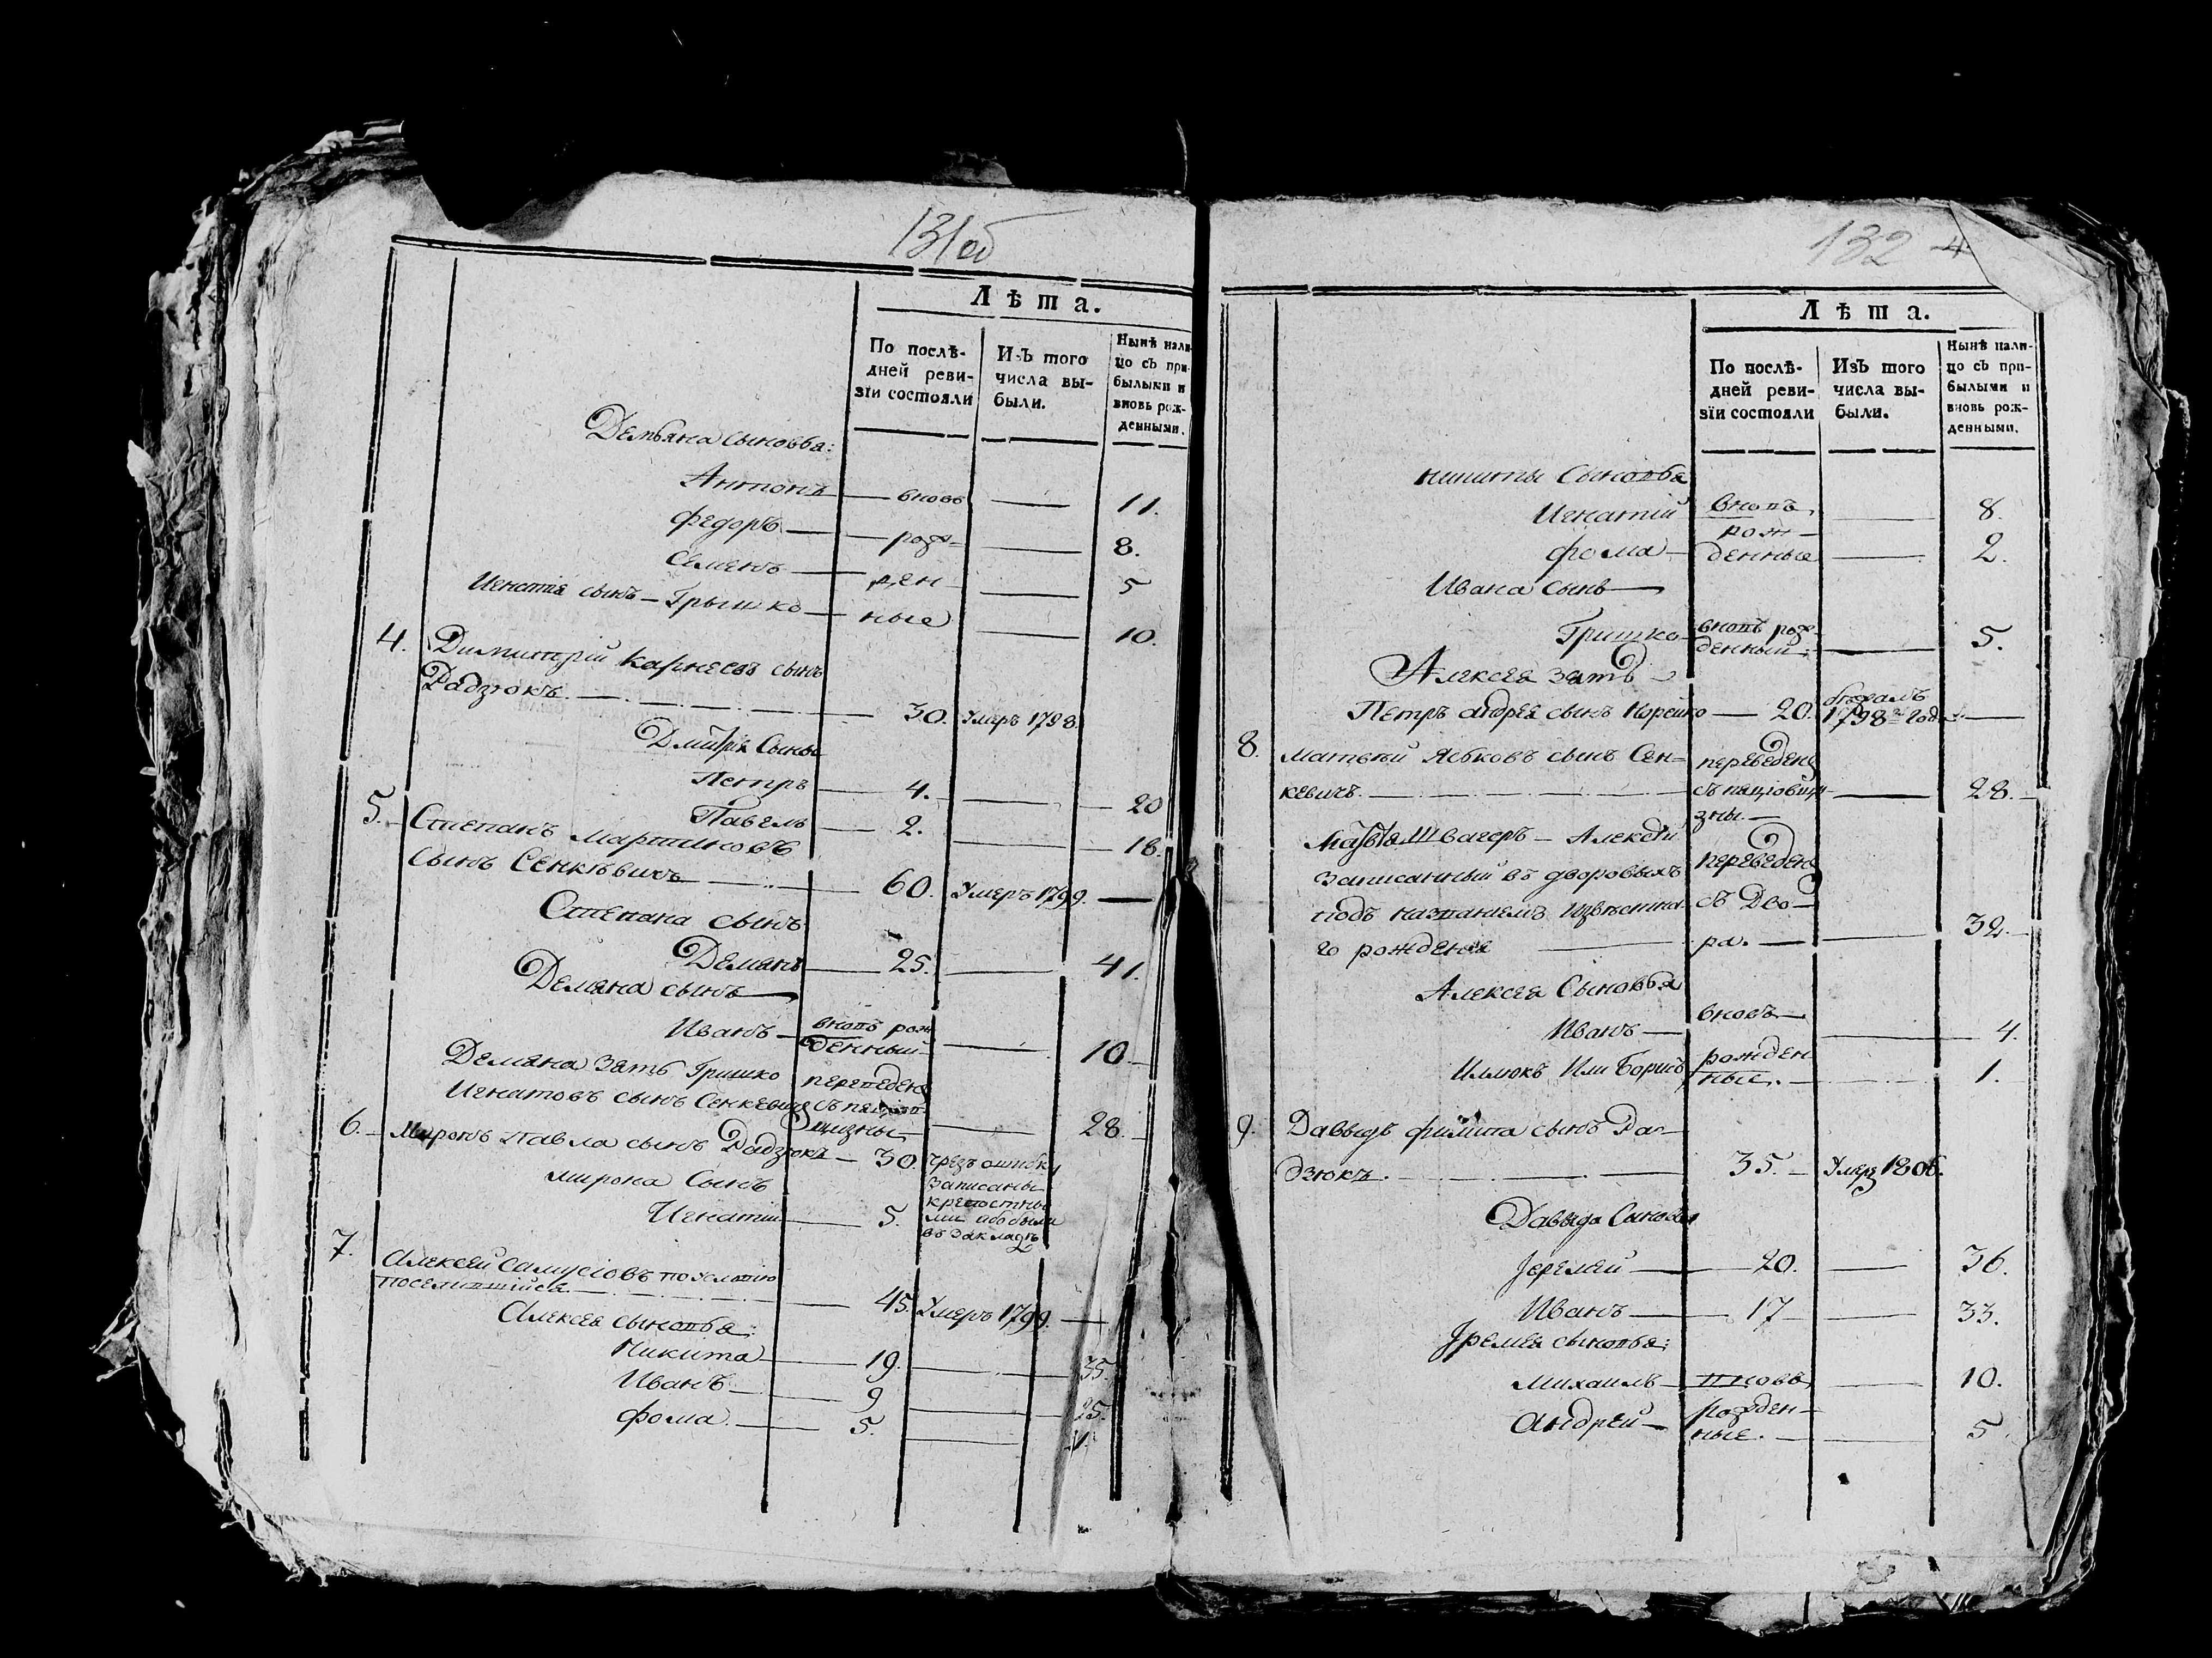 131об
Лѣта.
По послѣ-
дней реви-
зіи состояли
Изъ того
числа вы-
были.
Нынѣ нали-
цо съ при-
былыми и
вновь рож-
денными.
Демьяна сыновья:
Антонъ — вновь — 11.
Федоръ — рож= — 8.
Семенъ — ден — 5
Игнатія сынъ — Грышко — ные — 10.
4. Димитрій Карнеевъ сынъ
Радзюкъ — 30. Умеръ 1798.
Дмитрія Сыны
Петръ — 4. — 20
Павелъ — 2. — 18.
5. Степанъ Мартиновъ
Сынъ Сенкѣвичъ — 60. Умеръ 1799. —
Степана сынъ
Демянъ — 25. — 41.
Демяна сынъ —
Иванъ — вновь рож
денный — 10.
Демяна Зять Гришко переведенъ
Игнатовъ сынъ Сенкевичъ съ
щизны — 28.
6. Миронъ Павла сынъ Радзюкъ — 30. чрезъ ошибку
записаны
Мирона Сынъ
крепостны
Игнатій — 5. ми ибо были
въ закладѣ
7. Алексей Самусіовъ по условію
поселившійся — 45. Умеръ 1799. —
Алексея сыновья:
Никита — 19. — 35.
Иванъ — 9 — 25.
Фома — 5.
132
Лѣта.
По послѣ-
дней реви-
зіи состояли
Изъ того
числа вы-
были.
Нынѣ нали-
цо съ при-
былыми и
вновь рож-
денными.
Никиты Сыновья
Игнатій вновь — 8.
рож —
Фома — денные — 2.
Ивана сынъ —
Гришко — вновь рож-
денный — 5.
Алексея зять —
Петръ Андрея сынъ Корейко — 20. бѣжалъ
1798 год —
8. Матвѣй Ясковъ сынъ Сен= переведенъ
кевичъ. — 28.
зны. —
Матвѣя Швагеръ — Алексѣй
записанный въ дворовыхъ переведенъ
подъ названіемъ съ Дво-
го рожденія — ра. — 32.
Алексея Сыновья
Иванъ — вновь — 4.
Иллюкъ Или Борисъ рожден
ные. — 1.
9. Давыдъ сынъ Ра-
дзюкъ. — 35. — Умеръ 1806.
Давыда Сыновья
Іеремей — 20. — 36.
Иванъ — 17 — 33.
Іремея сыновья:
Михаилъ — вновь — 10.
Андрей — рожден-
ные. — 5.